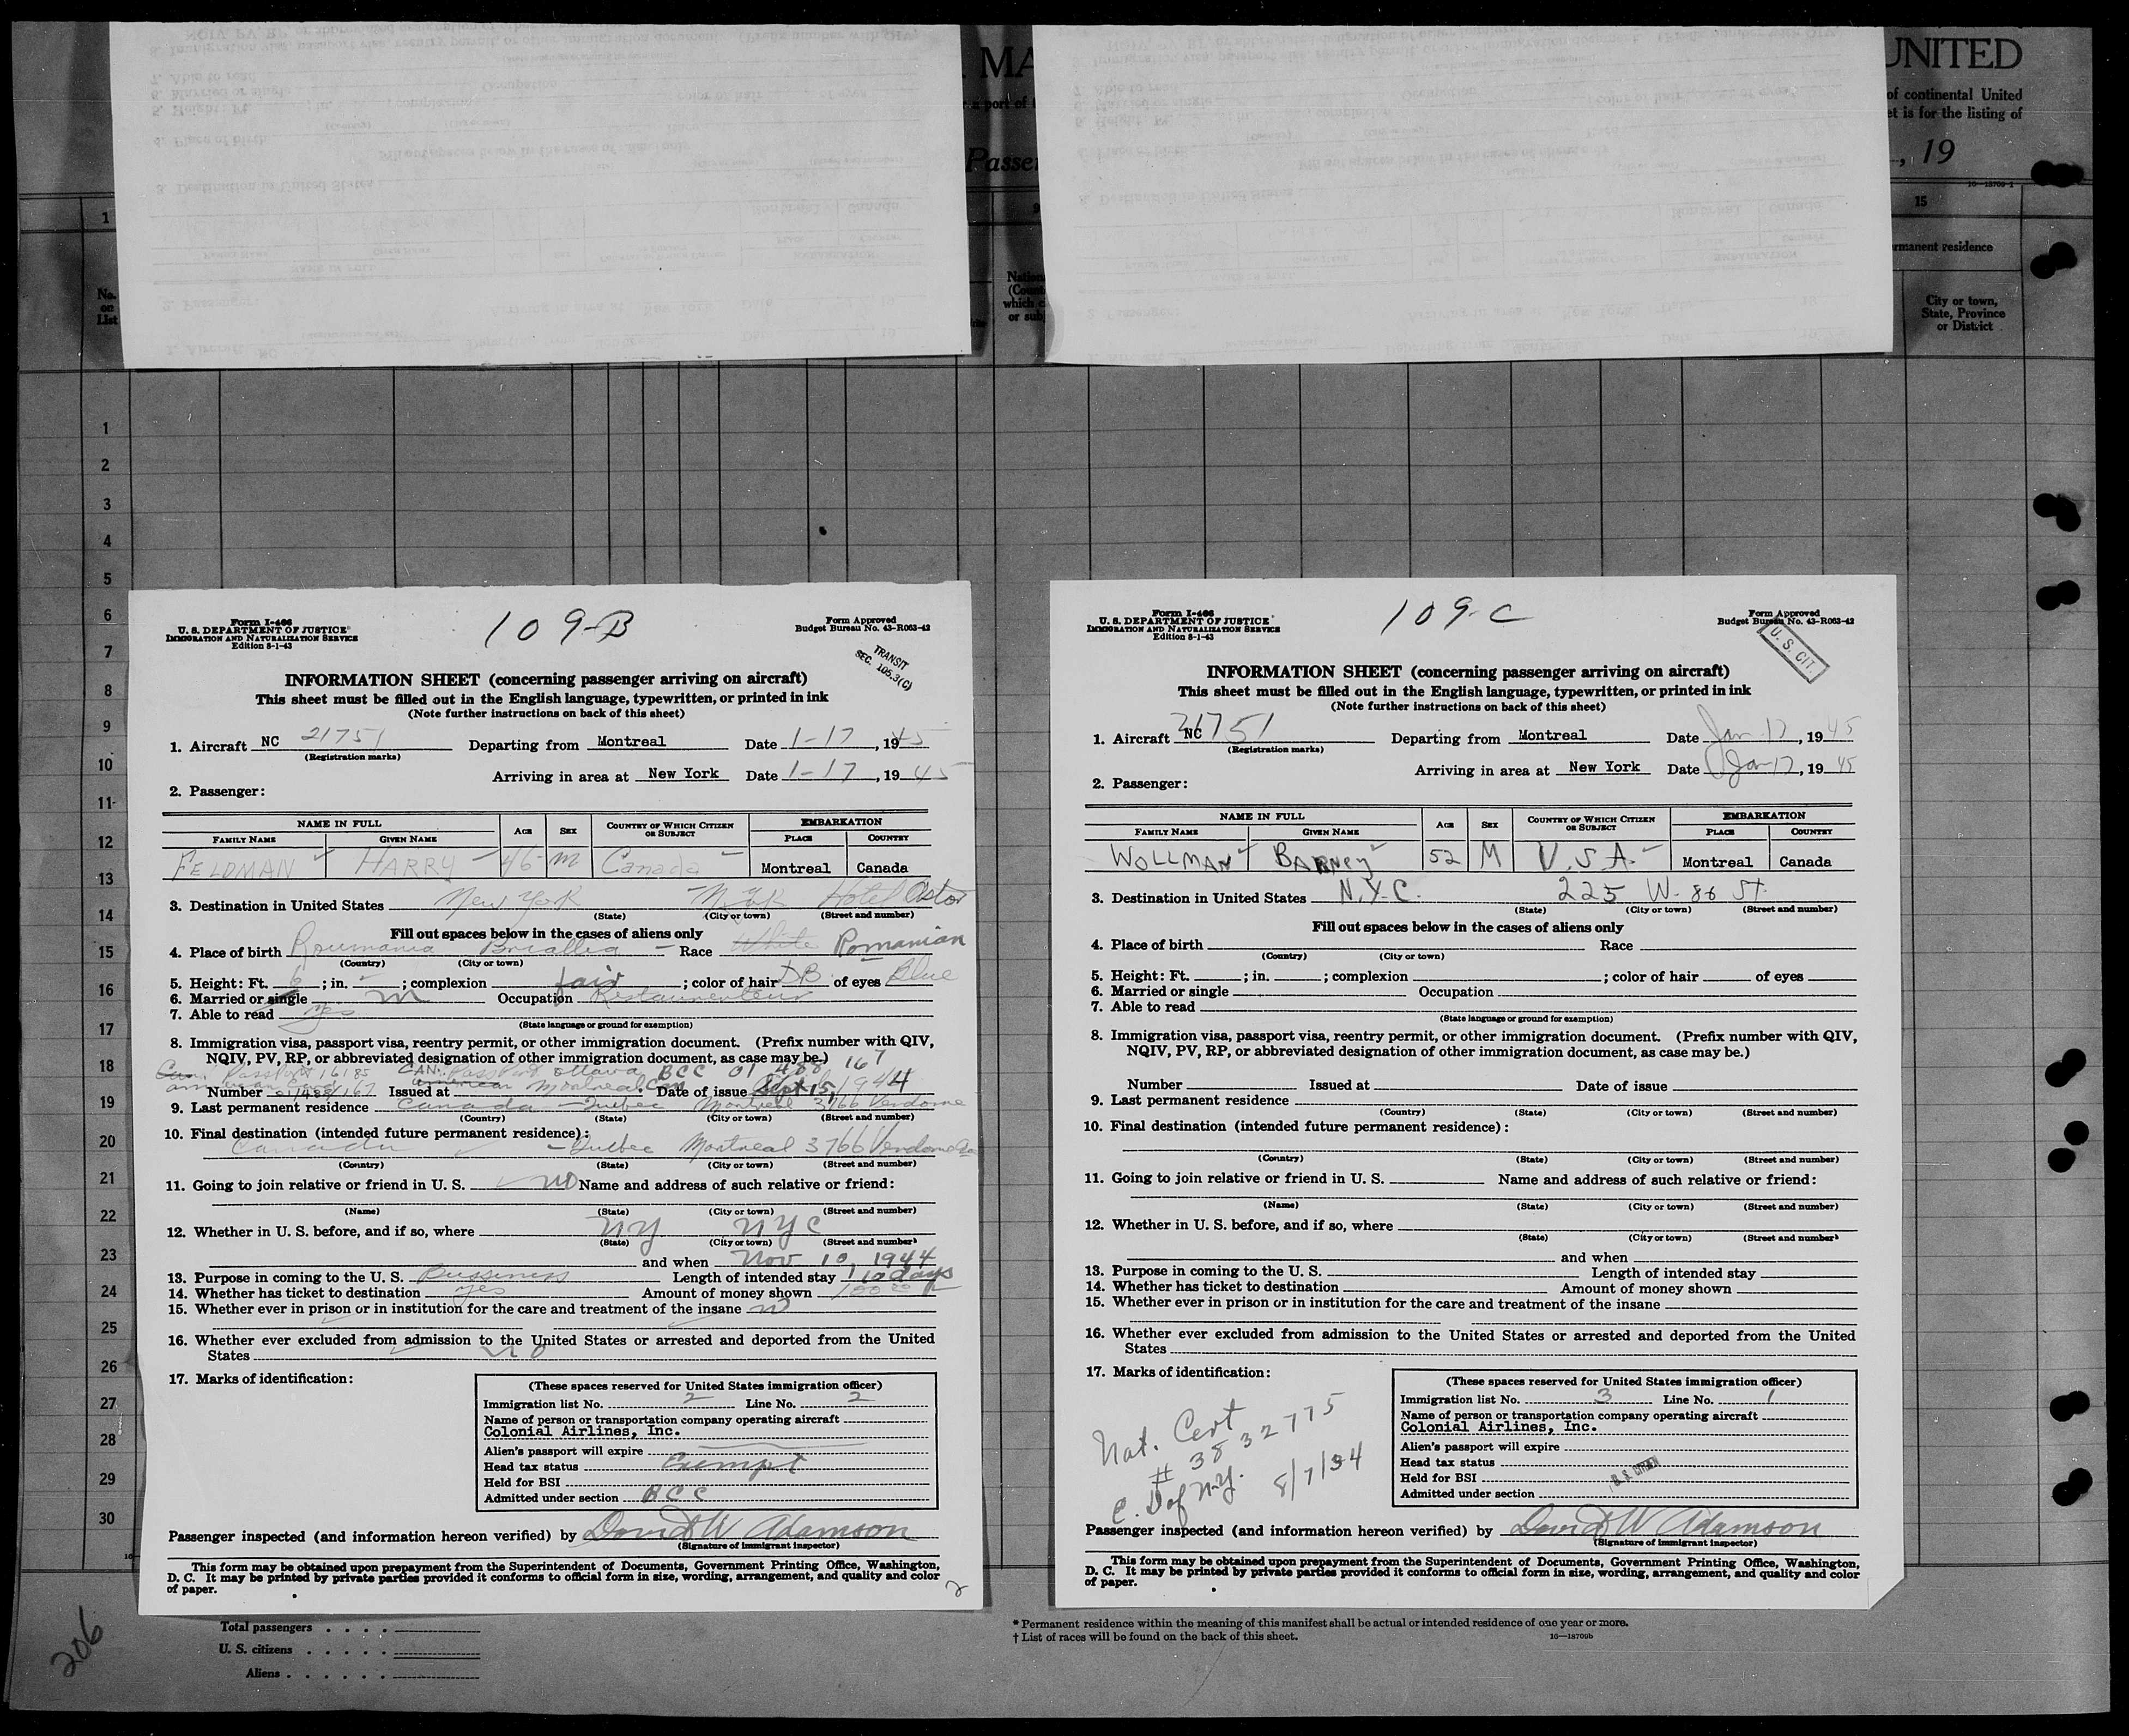 MA
UNITED
a port of
of continental United
et is for the listing of
Passe
, 19
16—18709-1
1
9
15
rmanent residence
No.
on
List
Nation
(Count
which c
or sub
City or town,
State, Province
or District
1
2
3
4
5
6
7
8
9
10
11
12
13
14
15
16
17
18
19
20
21
22
23
24
25
26
27
28
29
30
Form I-466
U. S. DEPARTMENT OF JUSTICE
IMMIGRATION AND NATURALIZATION SERVICE
Edition 8-1-43
109-B
Form Approved
Budget Bureau No. 43-R063-42
TRANSIT
SEC. 105.3(C)
INFORMATION SHEET (concerning passenger arriving on aircraft)
This sheet must be filled out in the English language, typewritten, or printed in ink
(Note further instructions on back of this sheet)
1. Aircraft NC 21751 Departing from Montreal Date 1-17, 1945
(Registration marks)
Arriving in area at New York Date 1-17, 1945
2. Passenger:
NAME IN FULL AGE SEX COUNTRY OF WHICH CITIZEN OR SUBJECT EMBARKATION
FAMILY NAME GIVEN NAME PLACE COUNTRY
FELDMAN HARRY 46 m Canada Montreal Canada
3. Destination in United States New York N. York Hotel Astor
(State) (City or town) (Street and number)
Fill out spaces below in the cases of aliens only
4. Place of birth Roumania Briallia Race White Romanian
(Country) (City or town)
5. Height: Ft. 6; in. -; complexion fair; color of hair DB of eyes Blue
6. Married or single m Occupation Restauranteur
7. Able to read yes
(State language or ground for exemption)
8. Immigration visa, passport visa, reentry permit, or other immigration document. (Prefix number with QIV,
NQIV, PV, RP, or abbreviated designation of other immigration document, as case may be.)
Can. Passport 16185 CAN. Passport Ottawa BCC 01 488 167
Number 01/488/167 Issued at american Montreal Can Date of issue Sept 15, 1944
9. Last permanent residence Canada - Quebec Montreal 3766 Vendome
(Country) (State) (City or town) (Street and number)
10. Final destination (intended future permanent residence):
Canada - Quebec Montreal 3766 Vendome
(Country) (State) (City or town) (Street and number)
11. Going to join relative or friend in U. S. no Name and address of such relative or friend:
(Name) (State) (City or town) (Street and number)
12. Whether in U. S. before, and if so, where NY NYC
(State) (City or town) (Street and number)
and when Nov 10, 1944
13. Purpose in coming to the U. S. Bussiness Length of intended stay 10 days
14. Whether has ticket to destination yes Amount of money shown 100 00
15. Whether ever in prison or in institution for the care and treatment of the insane no
16. Whether ever excluded from admission to the United States or arrested and deported from the United
States no
17. Marks of identification:
(These spaces reserved for United States immigration officer)
Immigration list No. 2 Line No. 2
Name of person or transportation company operating aircraft
Colonial Airlines, Inc.
Alien's passport will expire
Head tax status Exempt
Held for BSI
Admitted under section BCC
Passenger inspected (and information hereon verified) by David W Adamson
(Signature of immigrant inspector)
This form may be obtained upon prepayment from the Superintendent of Documents, Government Printing Office, Washington,
D. C. It may be printed by private parties provided it conforms to official form in size, wording, arrangement, and quality and color
of paper.
2
Form I-466
U. S. DEPARTMENT OF JUSTICE
IMMIGRATION AND NATURALIZATION SERVICE
Edition 8-1-43
109-C
Form Approved
Budget Bureau No. 43-R063-42
U. S. CIT.
INFORMATION SHEET (concerning passenger arriving on aircraft)
This sheet must be filled out in the English language, typewritten, or printed in ink
(Note further instructions on back of this sheet)
1. Aircraft NC 21751 Departing from Montreal Date Jan 17, 1945
(Registration marks)
Arriving in area at New York Date Jan 17, 1945
2. Passenger:
NAME IN FULL AGE SEX COUNTRY OF WHICH CITIZEN OR SUBJECT EMBARKATION
FAMILY NAME GIVEN NAME PLACE COUNTRY
WOLLMAN BARNEY 52 M U.S.A. Montreal Canada
3. Destination in United States N.Y.C. 225 W. 86 St.
(State) (City or town) (Street and number)
Fill out spaces below in the cases of aliens only
4. Place of birth Race
(Country) (City or town)
5. Height: Ft. ; in. ; complexion ; color of hair of eyes
6. Married or single Occupation
7. Able to read
(State language or ground for exemption)
8. Immigration visa, passport visa, reentry permit, or other immigration document. (Prefix number with QIV,
NQIV, PV, RP, or abbreviated designation of other immigration document, as case may be.)
Number Issued at Date of issue
9. Last permanent residence
(Country) (State) (City or town) (Street and number)
10. Final destination (intended future permanent residence):
(Country) (State) (City or town) (Street and number)
11. Going to join relative or friend in U. S. Name and address of such relative or friend:
(Name) (State) (City or town) (Street and number)
12. Whether in U. S. before, and if so, where
(State) (City or town) (Street and number)
and when
13. Purpose in coming to the U. S. Length of intended stay
14. Whether has ticket to destination Amount of money shown
15. Whether ever in prison or in institution for the care and treatment of the insane
16. Whether ever excluded from admission to the United States or arrested and deported from the United
States
17. Marks of identification:
Nat. Cert
# 3832775
C. D of N.Y. 8/7/34
(These spaces reserved for United States immigration officer)
Immigration list No. 3 Line No. 1
Name of person or transportation company operating aircraft
Colonial Airlines, Inc.
Alien's passport will expire
Head tax status
Held for BSI
U. S. CITIZEN
Admitted under section
Passenger inspected (and information hereon verified) by David W Adamson
(Signature of immigrant inspector)
This form may be obtained upon prepayment from the Superintendent of Documents, Government Printing Office, Washington,
D. C. It may be printed by private parties provided it conforms to official form in size, wording, arrangement, and quality and color
of paper.
206
Total passengers
U. S. citizens
Aliens
* Permanent residence within the meaning of this manifest shall be actual or intended residence of one year or more.
† List of races will be found on the back of this sheet.
16—18709b